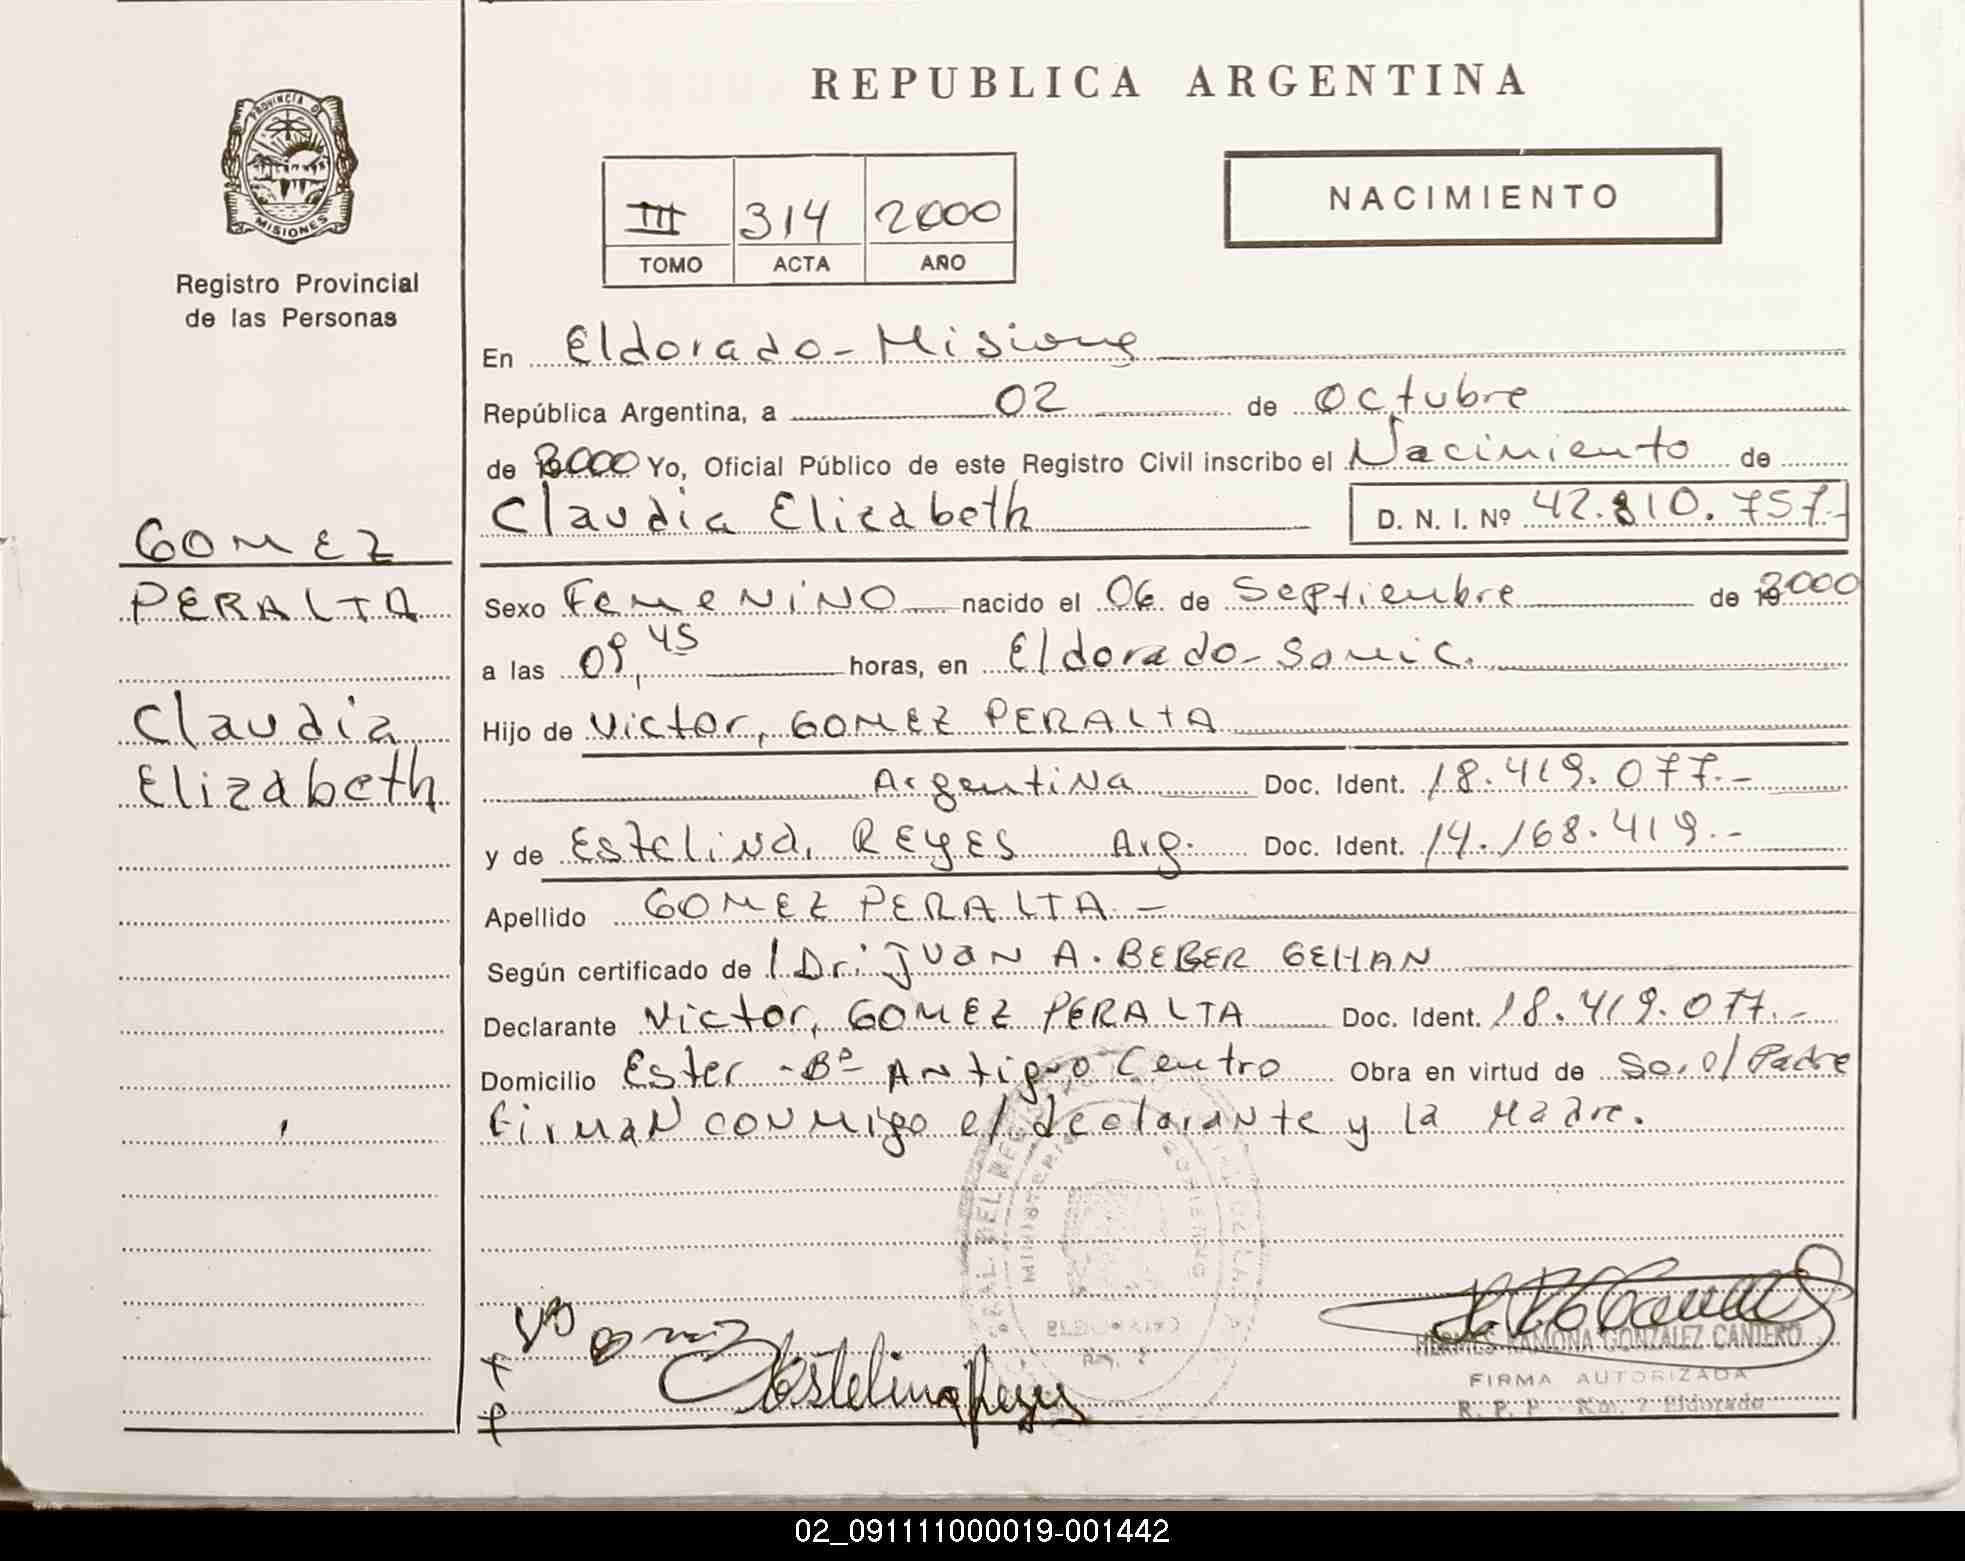 REPUBLICA ARGENTINA
PROVINCIA D
MISIONES
Registro Provincial
de las Personas
III 314 2000
TOMO ACTA AÑO
NACIMIENTO
En Eldorado - Misiones
República Argentina, a 02 de Octubre
de 2000 Yo, Oficial Público de este Registro Civil inscribo el Nacimiento de
Claudia Elizabeth D. N. I. Nº 42.810.757.-
GOMEZ
PERALTA
Claudia
Elizabeth
Sexo Femenino nacido el 06 de Septiembre de 2000
a las 09,45 horas, en Eldorado - Samic.
Hijo de Victor, GOMEZ PERALTA
Argentina Doc. Ident. 18.419.077.-
y de Estelina, REYES Arg. Doc. Ident. 14.168.419.-
Apellido GOMEZ PERALTA -
Según certificado de Dr: Juan A. BEBER GEHAN
Declarante Victor, GOMEZ PERALTA Doc. Ident. 18.419.077.-
Domicilio Ester - Bº Antiguo Centro Obra en virtud de Ser el Padre
Firman conmigo el declarante y la Madre.
Estelina Reyes
HERMES RAMONA GONZALEZ CANTERO
FIRMA AUTORIZADA
R. P. P. Km. 2 Eldorado
02_091111000019-001442